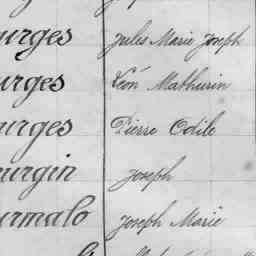 urges Jules Marie Joseph
urges Léon Mathurin
urges Pierre Odile
urgin Joseph
urmalo Joseph Marie